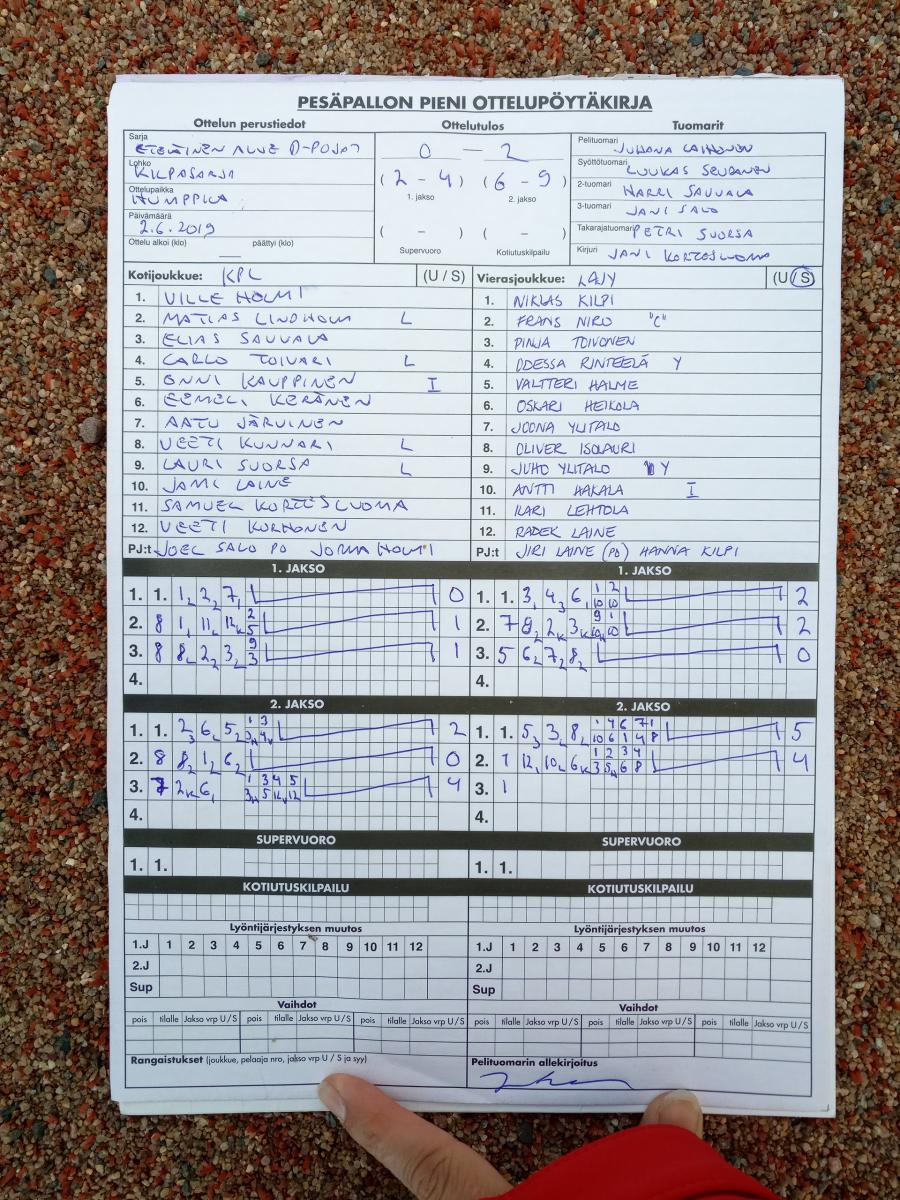 PESÄPALLON PIENI OTTELUPÖYTÄKIRJA
Ottelun perustiedot
Sarja
ETELÄINEN ALUE D-POJAT
Lohko
KILPASARJA
Ottelupaikka
HUMPPILA
Päivämäärä
2.6.2019
Ottelu alkoi (klo) päättyi (klo)
Ottelutulos
0 – 2
(2 - 4) (6 - 9)
1. jakso 2. jakso
( - ) ( - )
Supervuoro Kotiutuskilpailu
Tuomarit
Pelituomari JUHANA LAIHONEN
Syöttötuomari LUUKAS
2-tuomari HARRI SAUVALA
3-tuomari JANI SALO
Takarajatuomari PETRI SUORSA
Kirjuri JANI KORTESLUOMA
Kotijoukkue: KPL (U / S)
1. VILLE HOLMI
2. MATIAS LINDHOLM L
3. ELIAS SAUVALA
4. CARLO TOIVARI L
5. ONNI KAUPPINEN I
6. EEMELI KERÄNEN
7. AATU JÄRVINEN
8. VEETI KUNNARI L
9. LAURI SUORSA L
10. JAMI LAINE
11. SAMUEL KORTESLUOMA
12. VEETI KORHONEN
PJ:t JOEL SALO PO JORMA HOLMI
Vierasjoukkue: LAJY (U / S)
1. NIKLAS KILPI
2. FRANS NIRO "C"
3. PINJA TOIVONEN
4. ODESSA RINTEELÄ Y
5. VALTTERI HALME
6. OSKARI HEIKOLA
7. JOONA YLITALO
8. OLIVER ISOLAURI
9. JUHO YLITALO Y
10. ANTTI HAKALA I
11. ILARI LEHTOLA
12. RADEK LAINE
PJ:t JIRI LAINE (PO) HANNA KILPI
1. JAKSO
1. 1. 1 2 7 0
2. 8 1 11 12 2 5 1
3. 8 8 2 3 9 3 1
4.
1. JAKSO
1. 1. 3 4 6 1 2 10 10 2
2. 7 8 2 3 9 1 10 10 2
3. 5 6 7 8 0
4.
2. JAKSO
1. 1. 2 6 5 1 3 3 4 2
2. 8 8 1 6 0
3. 7 2 6 1 3 4 5 3 5 12 12 4
4.
2. JAKSO
1. 1. 5 3 8 1 4 6 7 1 10 6 1 4 8 5
2. 1 12 10 6 1 2 3 4 3 5 6 8 4
3. 1
4.
SUPERVUORO
1. 1.
SUPERVUORO
1. 1.
KOTIUTUSKILPAILU
KOTIUTUSKILPAILU
Lyöntijärjestyksen muutos
1.J 1 2 3 4 5 6 7 8 9 10 11 12
2.J
Sup
Lyöntijärjestyksen muutos
1.J 1 2 3 4 5 6 7 8 9 10 11 12
2.J
Sup
Vaihdot
pois tilalle Jakso vrp U / S pois tilalle Jakso vrp U / S pois tilalle Jakso vrp U / S
Vaihdot
pois tilalle Jakso vrp U / S pois tilalle Jakso vrp U / S pois tilalle Jakso vrp U / S
Rangaistukset (joukkue, pelaaja nro, jakso vrp U / S ja syy)
Pelituomarin allekirjoitus